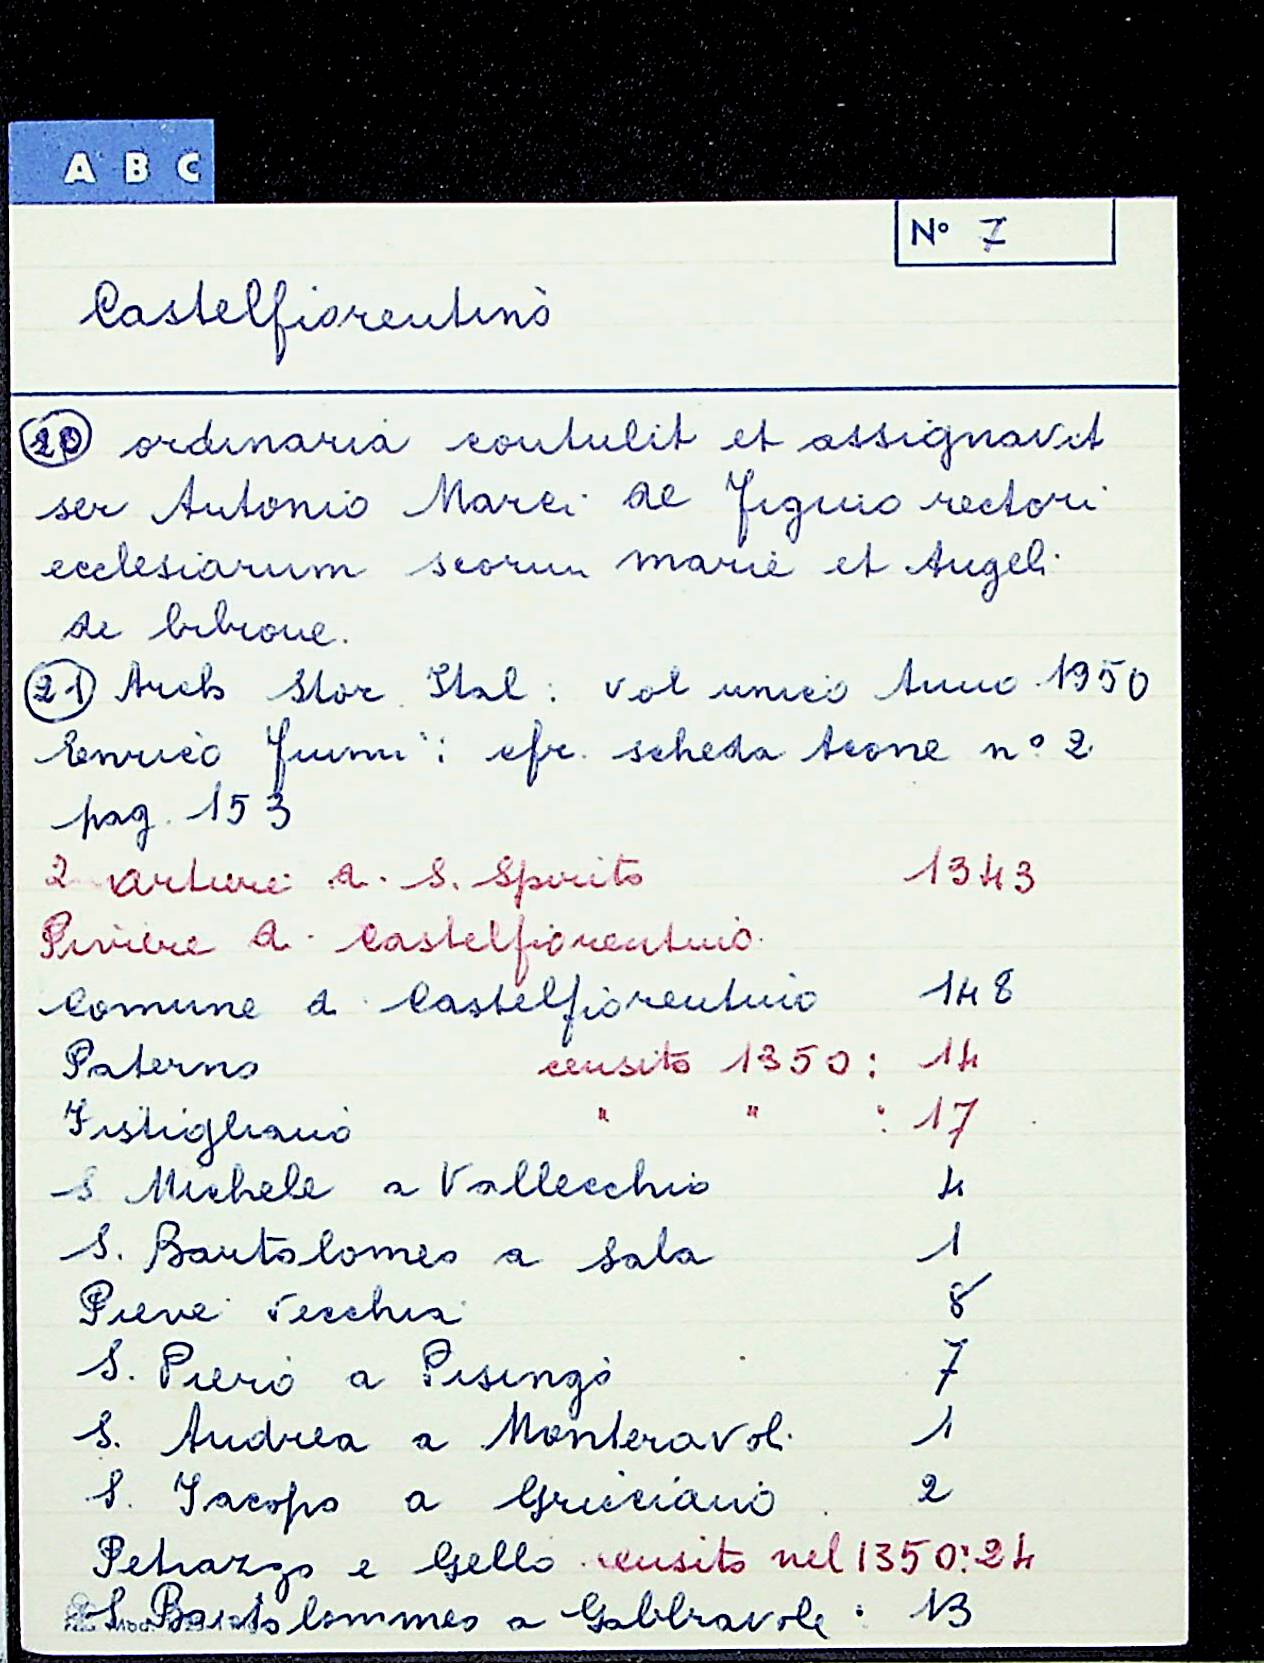 A B C
N° 7
Castelfiorentino
20 ordinaria contulit et assignavit
ser Antonio Marci de Figino rectori
ecclesiarum scorum marie et Angeli
de bibione.
21 Arch Stor. Ital: vol unico Anno 1950
Enrico Fiumi: cfr. scheda Acone n° 2
pag. 153
2 arture d. S. Spirito 1343
Piviere d. Castelfiorentino
Comune d. Castelfiorentino 148
Paterno censito 1350: 14
Fistigliano " " : 17
S Michele a Vallecchio 4
S. Bartolomeo a Sala 1
Pieve Vecchia 8
S. Piero a Pisingo 7
S. Andrea a Monteravoli 1
S. Jacopo a Griciano 2
Petrazzo e Gello censito nel 1350: 24
S. Bartolommeo a Gabbravoli: 13